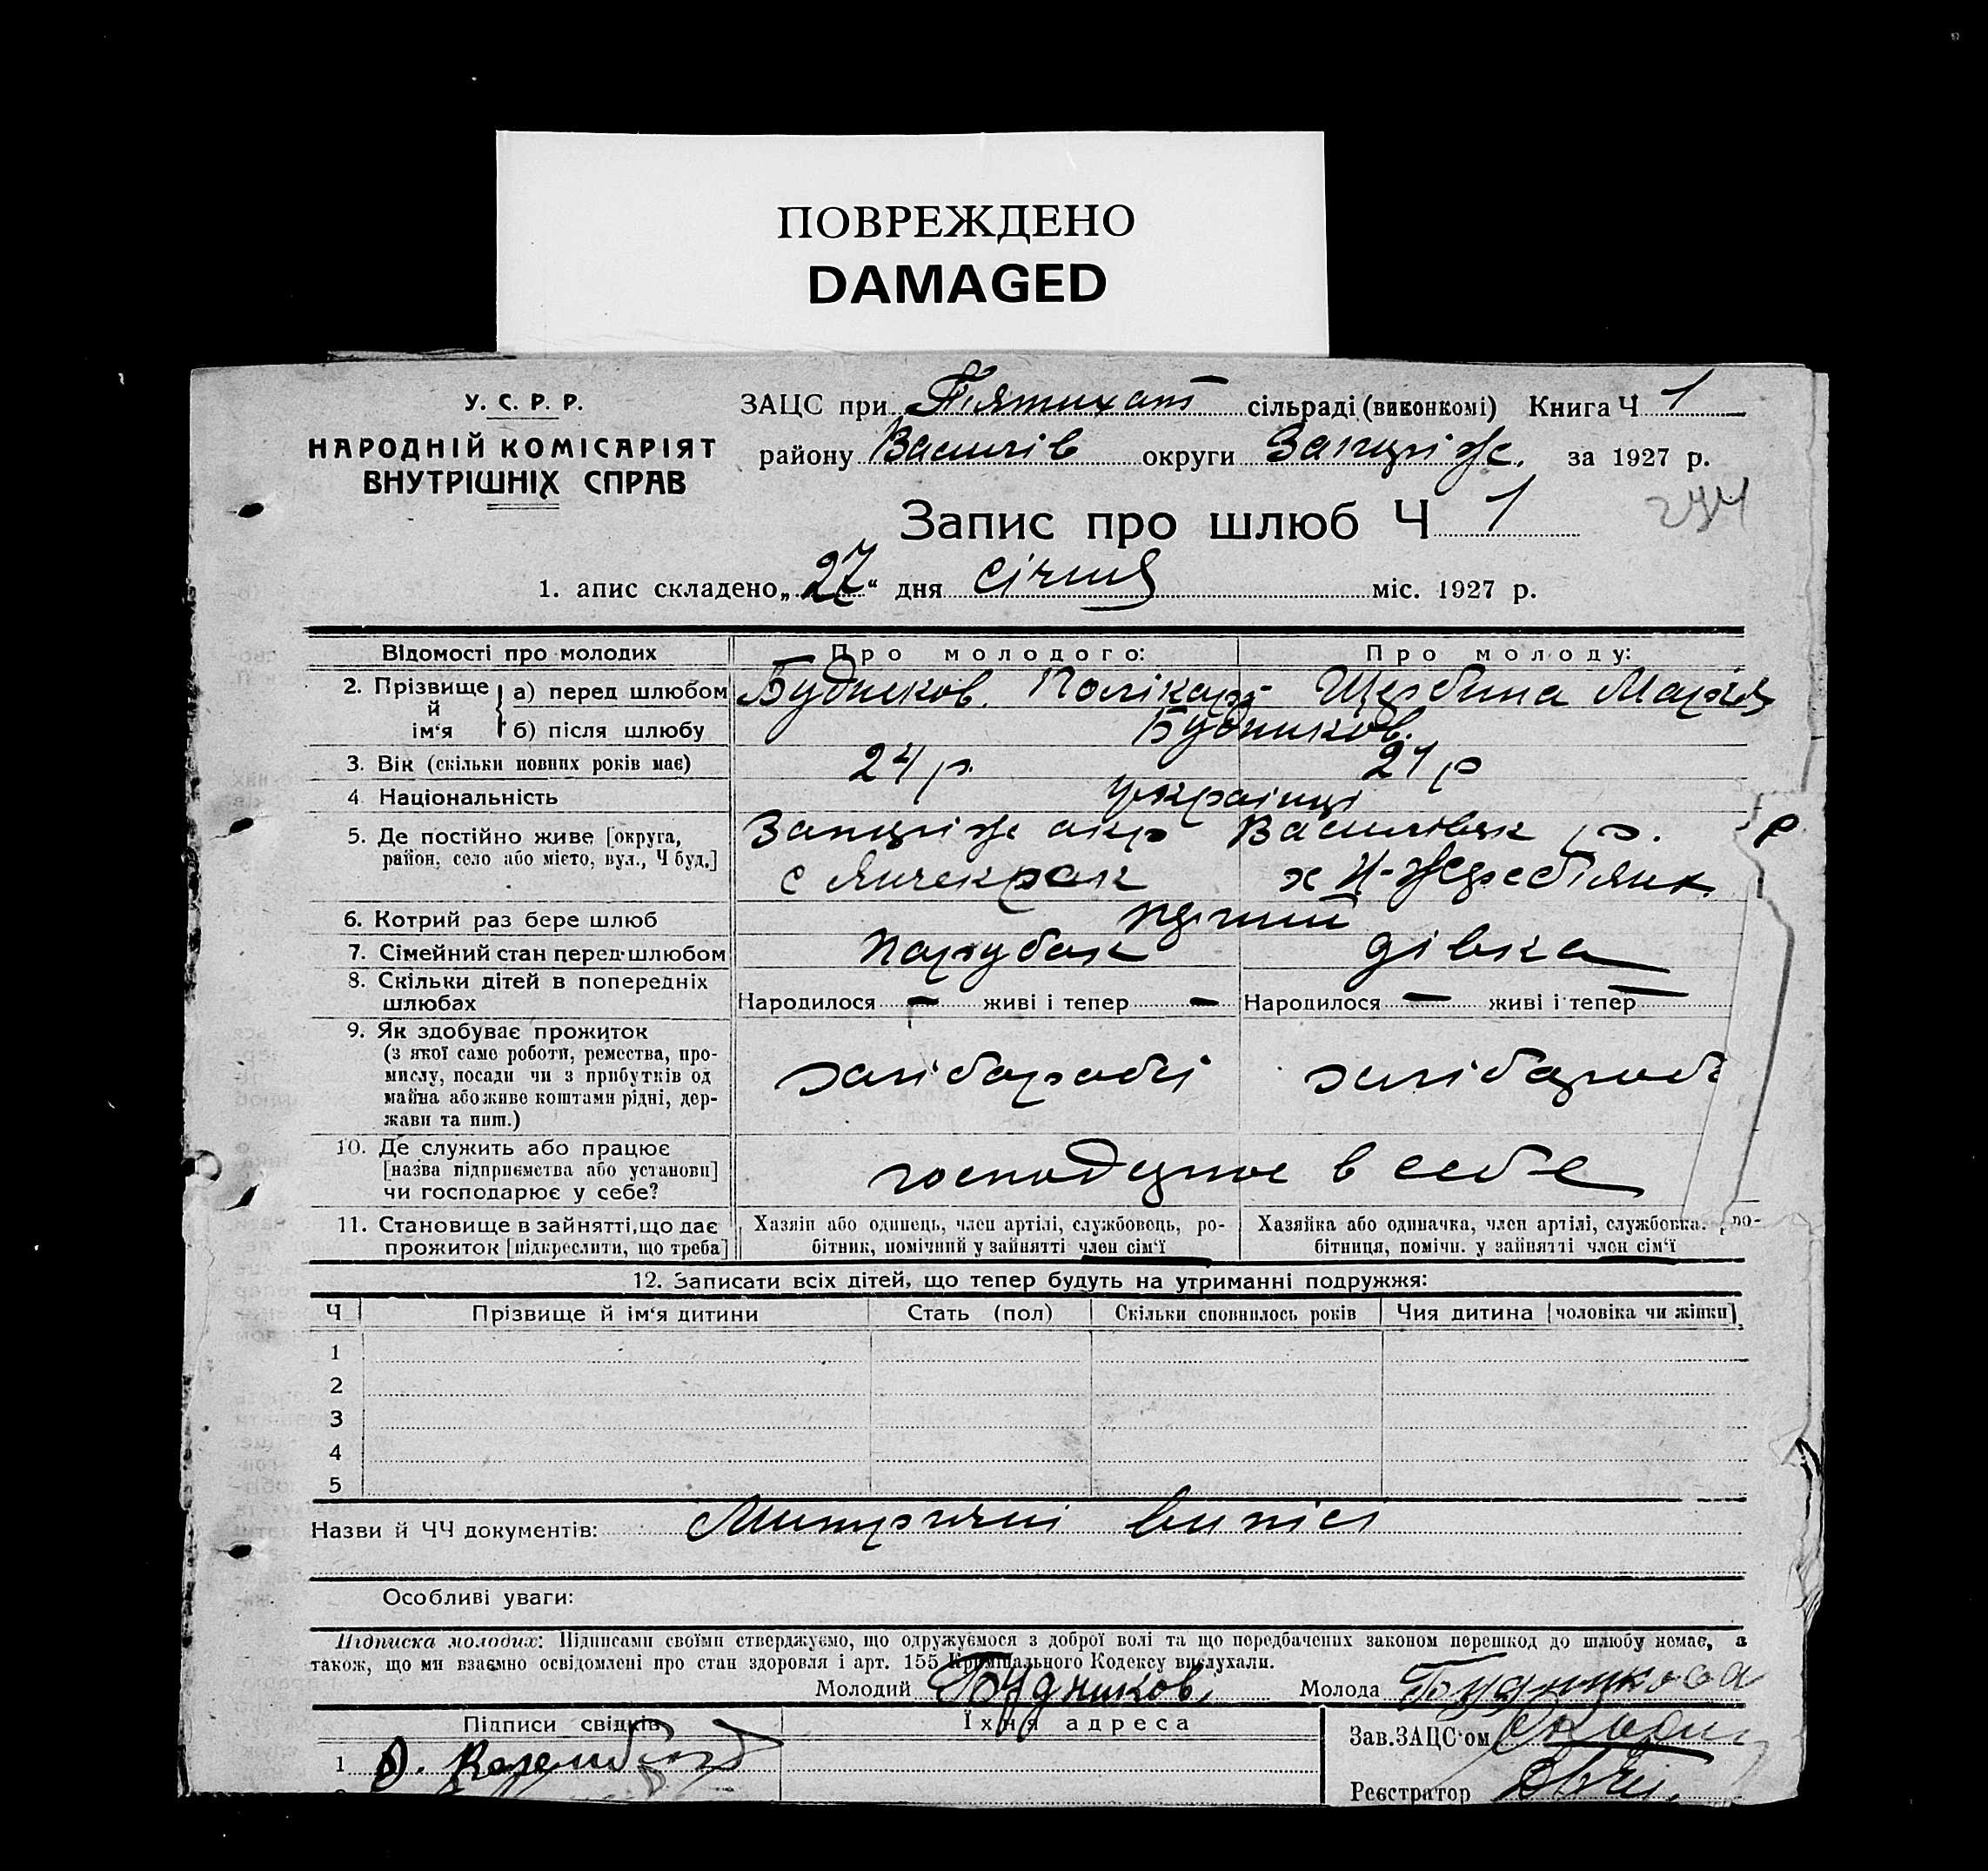 ПОВРЕЖДЕНО
DAMAGED
У. С. Р. Р.
НАРОДНІЙ КОМІСАРІЯТ
ВНУТРІШНІХ СПРАВ
ЗАЦС при Пятихат сільраді (виконкомі) Книга Ч 1
району Василів округи Запоріж. за 1927 р.
Запис про шлюб Ч 1
244
1. апис складено „27“ дня січня міс. 1927 р.
Відомості про молодих Про молодого: Про молоду:
2. Прізвище й ім‘я а) перед шлюбом Будников. Полікарп Щербина Марія
б) після шлюбу Будников.
3. Вік (скільки повних років має) 24 р. 21 р
4 Національність українці
5. Де постійно живе [округа, район, село або місто, вул., Ч буд.] Запоріж окр Василівськ р.
с Янчекрак х Н-Жеребянк.
6. Котрий раз бере шлюб перший
7. Сімейний стан перед шлюбом парубок дівка
8. Скільки дітей в попередніх шлюбах Народилося — живі і тепер — Народилося — живі і тепер —
9. Як здобуває прожиток
(з якої саме роботи, ремества, про-
мислу, посади чи з прибутків од
майна або живе коштами рідні, дер-
жави та инш.)
хліборобі хлібороб
10. Де служить або працює
[назва підприємства або установи]
чи господарює у себе?
господарює в себе
11. Становище в зайнятті, що дає
прожиток [підкреслити, що треба]
Хазяїн або одинець, член артілі, службовець, ро-
бітник, помічний у зайнятті член сім‘ї
Хазяйка або одиначка, член артілі, службовка, ро-
бітниця, помічн. у зайнятті член сім‘ї
12. Записати всіх дітей, що тепер будуть на утриманні подружжя:
Ч Прізвище й ім‘я дитини Стать (пол) Скільки сповнилось років Чия дитина [чоловіка чи жінки]
1
2
3
4
5
Назви й ЧЧ документів: Метричні виписі
Особливі уваги:
Підписка молодих: Підписами своїми стверджуємо, що одружуємося з доброї волі та що передбачених законом перешкод до шлюбу немає, а
також, що ми взаємно освідомлені про стан здоровля і арт. 155 Кримінального Кодексу вислухали.
Молодий Будников. Молода Будникова
Підписи свідків Їхня адреса Зав. ЗАЦС‘ом
1
Реєстратор